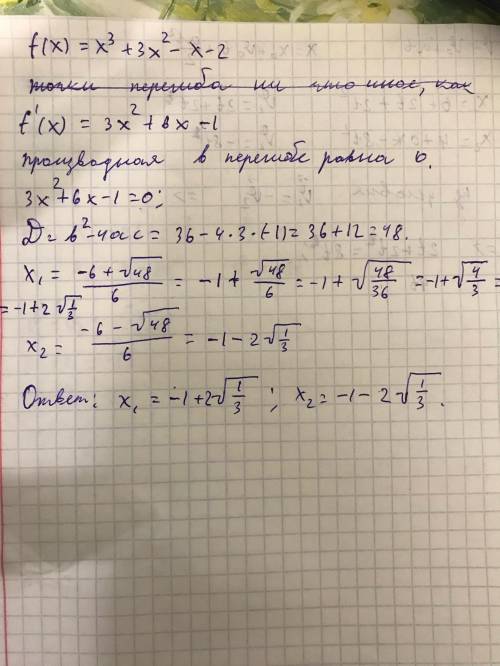 f(x) = x³ + 3x² - x - 2
точки перегиба ни что иное, как
f'(x) = 3x² + 6x - 1
производная в перегибе равна 0.
3x² + 6x - 1 = 0;
D = b² - 4ac = 36 - 4·3·(-1) = 36 + 12 = 48.
x₁ = (-6 + √48)/6 = -1 + √48/6 = -1 + √(48/36) = -1 + √(4/3) =
= -1 + 2√(1/3)
x₂ = (-6 - √48)/6 = -1 - 2√(1/3)
Ответ: x₁ = -1 + 2√(1/3) ; x₂ = -1 - 2√(1/3).